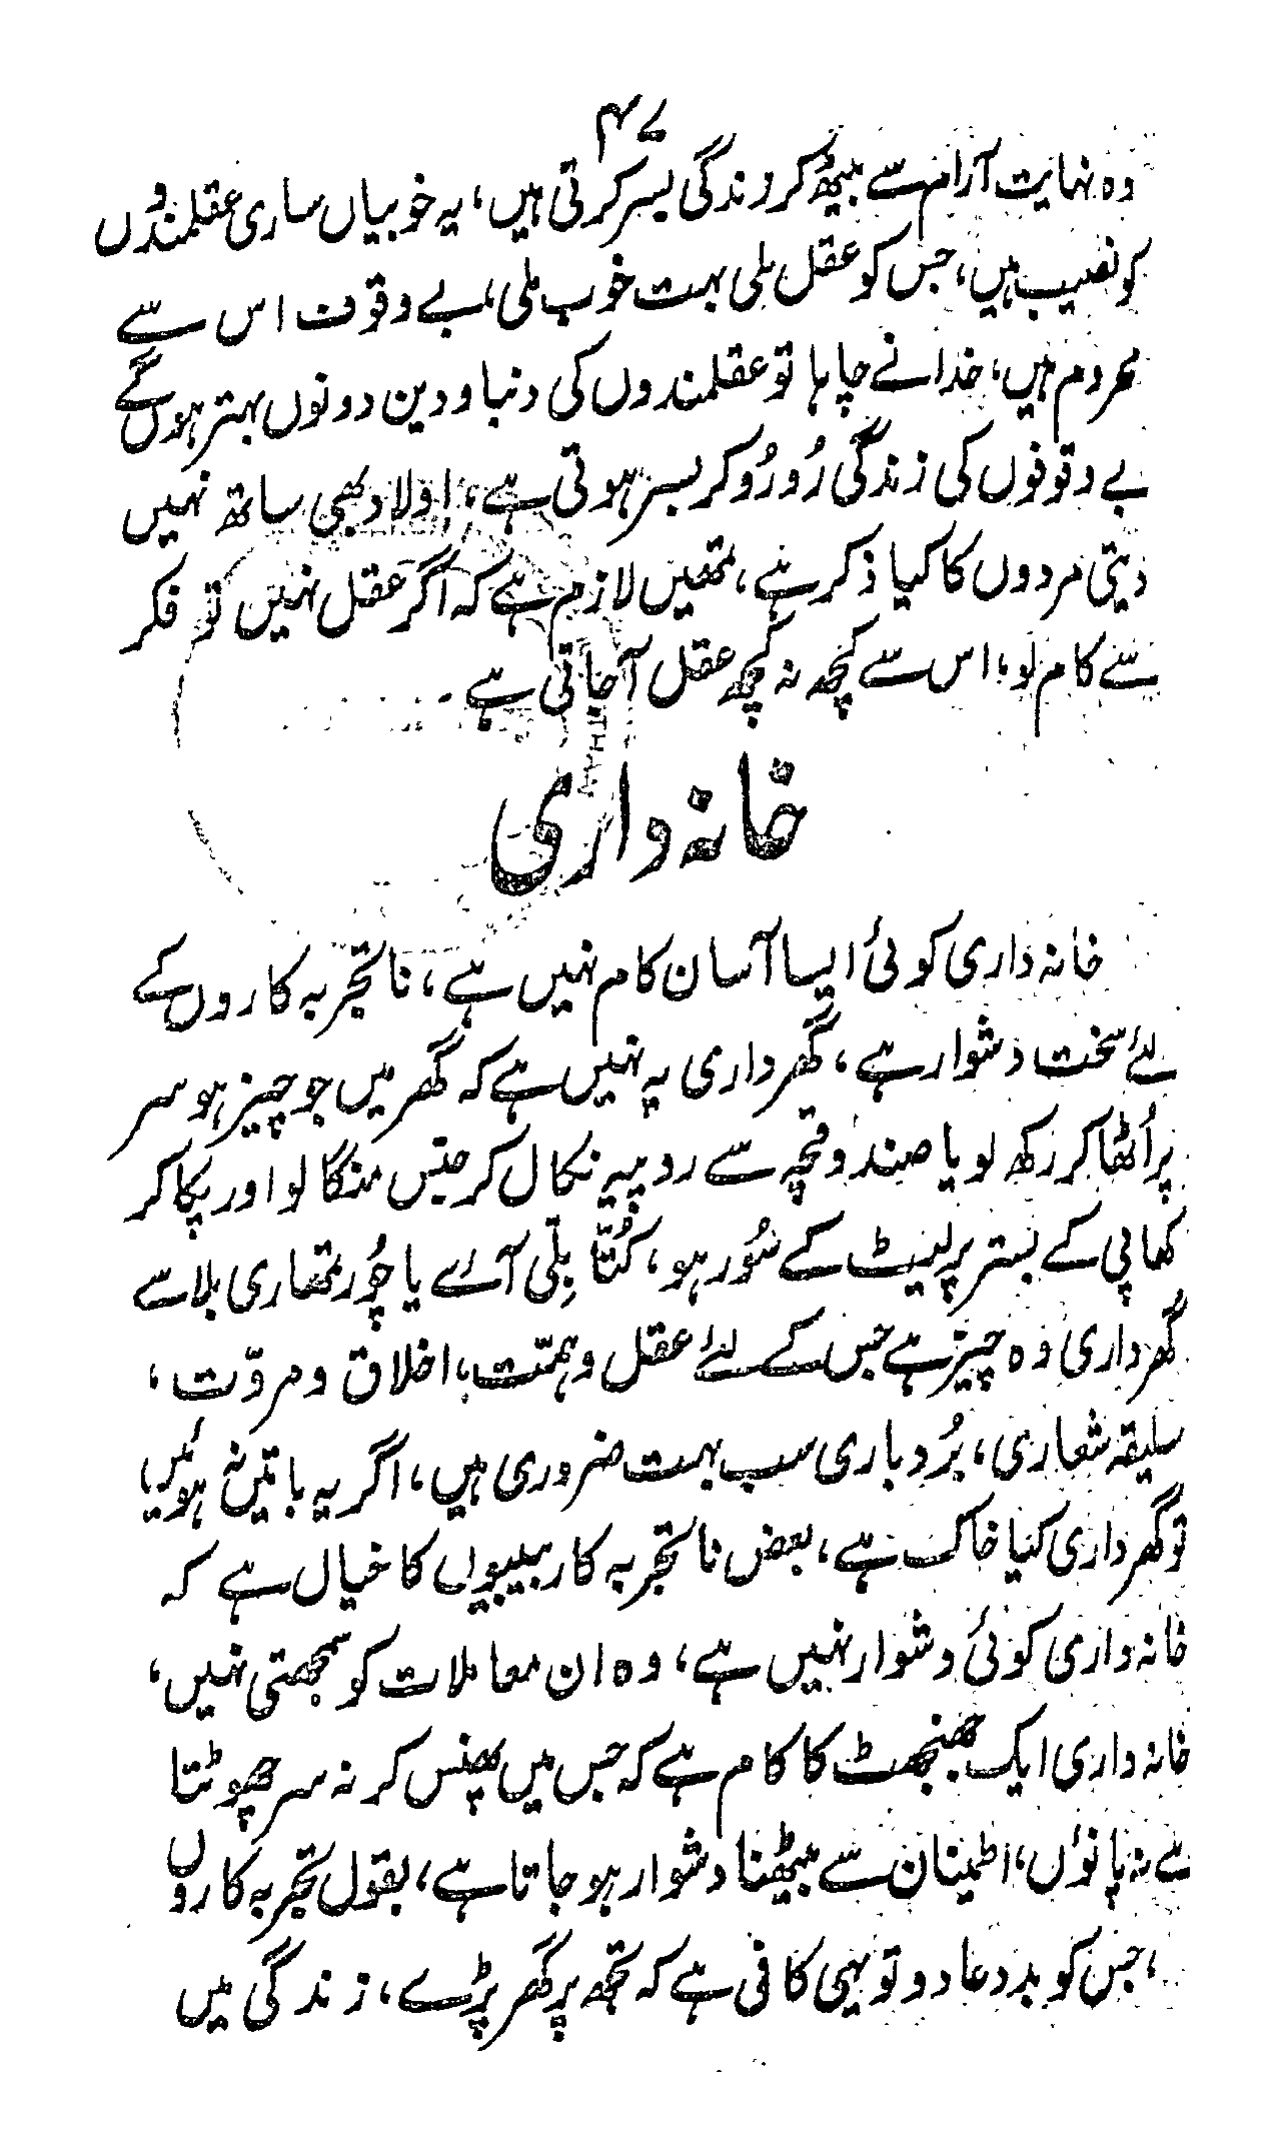 ۴۷
وہ نہایت آرام سے بیٹھ کر زندگی بسر کرتی ہیں، یہ خوبیاں ساری عقلمندوں
کو نصیب ہیں، جس کو عقل ملی بہت خوب ملی، بے وقوف اس سے
محروم ہیں، خدا نے چاہا تو عقلمندوں کی دنیا و دین دونوں بہتر ہوں گے
بے وقوفوں کی زندگی رُو رُو کر بسر ہوتی ہے، اولاد بھی ساتھ نہیں
دیتی مردوں کا کیا ذکر ہے، تمھیں لازم ہے کہ اگر عقل نہیں تو فکر
سے کام لو، اس سے کچھ نہ کچھ عقل آ جاتی ہے۔
خانہ داری
خانہ داری کوئی ایسا آسان کام نہیں ہے، ناتجربہ کاروں کے
لئے سخت دشوار ہے، گھرداری یہ نہیں ہے کہ گھر میں جو چیز ہو سر
پر اُٹھا کر رکھ لو یا صندوقچہ سے روپیہ نکال کر جنس منگا لو اور پکا کر
کھا پی کے بستر پر لیٹ کے سُور ہو، کُتّا بِلّی آئے یا چُور تمھاری بلا سے
گھرداری وہ چیز ہے جس کے لئے عقل و ہمّت، اخلاق و مروّت،
سلیقہ شعاری، بُردباری سب بہت ضروری ہیں، اگر یہ باتیں نہ ہوئیں
تو گھرداری کیا خاک ہے، بعض ناتجربہ کار بیبیوں کا خیال ہے کہ
خانہ داری کوئی دشوار نہیں ہے، وہ ان معاملات کو سمجھتی نہیں،
خانہ داری ایک جھنجھٹ کا کام ہے کہ جس میں پھنس کر نہ سر چھوٹتا
ہے نہ پانوٗں، اطمینان سے بیٹھنا دشوار ہو جاتا ہے، بقول تجربہ کاروں
، جس کو بددعا دو تو یہی کافی ہے کہ تجھ پر گھر پڑے، زندگی میں